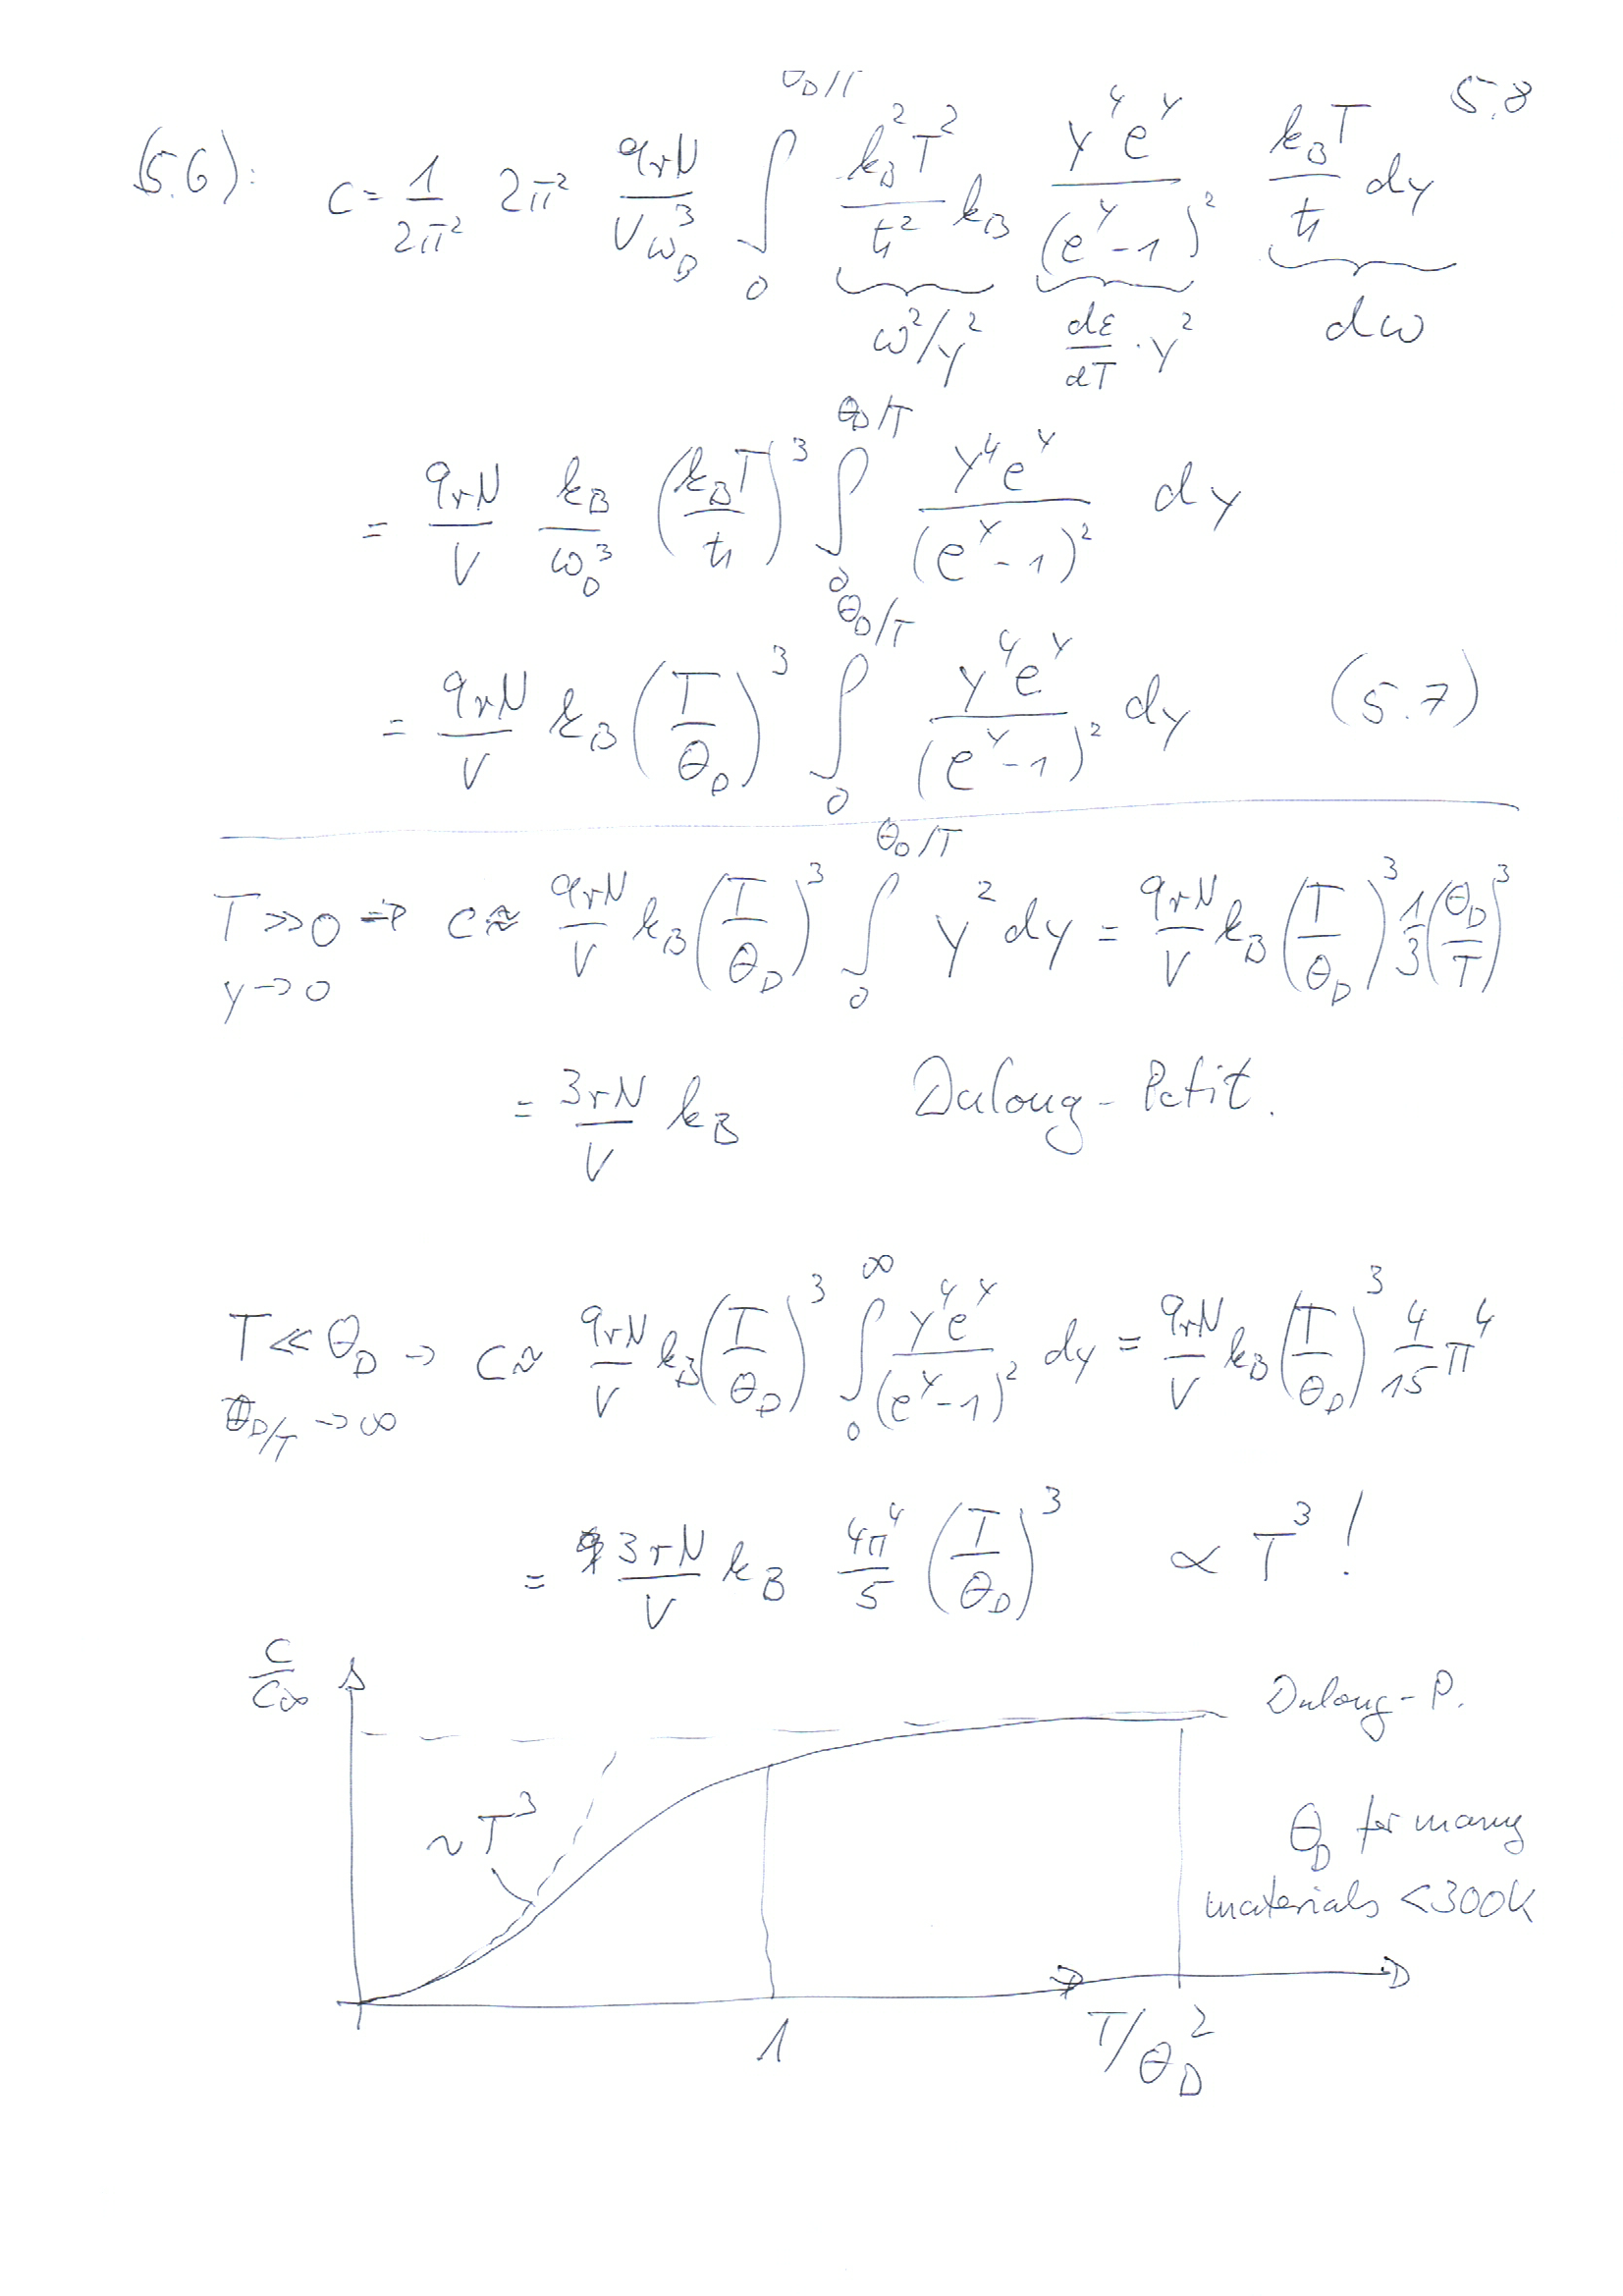 5.8
(5.6): c = 1/2π² 2π² 9rN/(V ω_D³) ∫₀^{θ_D/T} k_B²T²/ħ² k_B y⁴e^y/(e^y-1)² k_BT/ħ dy
ω²/y² dε/dT · y² dω
= 9rN/V k_B/ω_D³ (k_BT/ħ)³ ∫₀^{θ_D/T} y⁴e^y/(e^y-1)² dy
= 9rN/V k_B (T/θ_D)³ ∫₀^{θ_D/T} y⁴e^y/(e^y-1)² dy (5.7)
T ≫ 0 ⇒ c ≈ 9rN/V k_B (T/θ_D)³ ∫₀^{θ_D/T} y² dy = 9rN/V k_B (T/θ_D)³ 1/3 (θ_D/T)³
y → 0
= 3rN/V k_B Dulong-Petit.
T ≪ θ_D → c ≈ 9rN/V k_B (T/θ_D)³ ∫₀^∞ y⁴e^y/(e^y-1)² dy = 9rN/V k_B (T/θ_D)³ 4/15 π⁴
θ_D/T → ∞
= 3rN/V k_B 4π⁴/5 (T/θ_D)³ ∝ T³ !
c/c∞
Dulong-P.
~T³
θ_D for many
materials <300K
1 T/θ_D 2